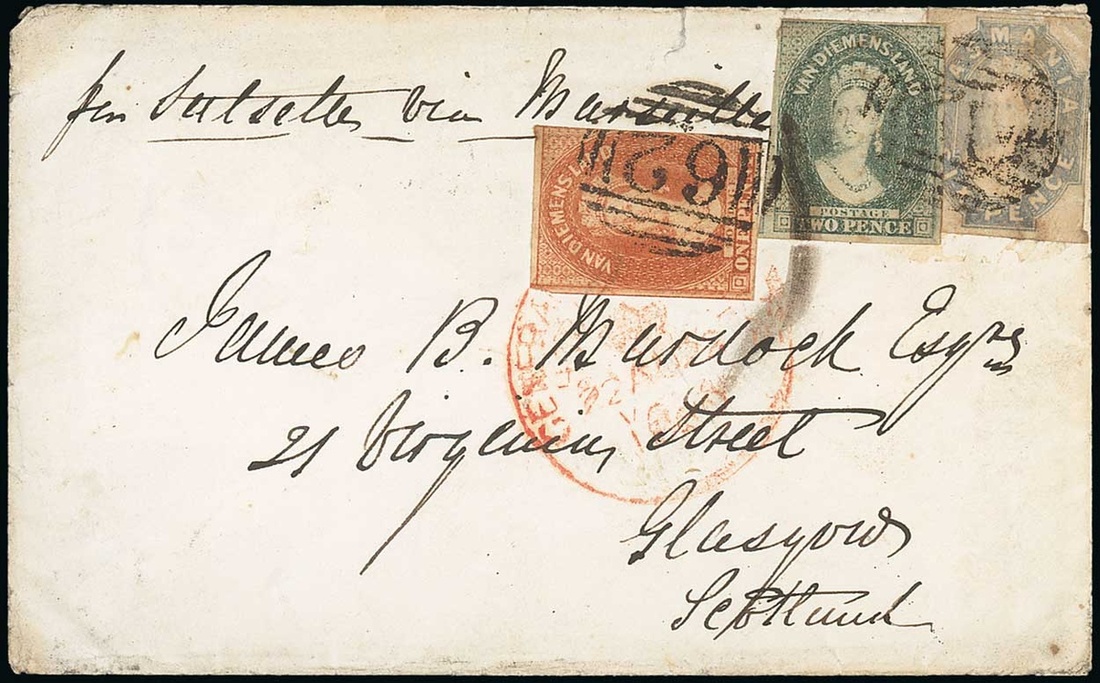 per Salsette via Marseilles
VAN DIEMENS LAND
POSTAGE
TWO PENCE
TASMANIA
PENCE
VAN DIEMENS LAND
ONE PENNY
62
GENERAL
James B. Murdoch Esqre
21 Virginia Street
Glasgow
Scotland